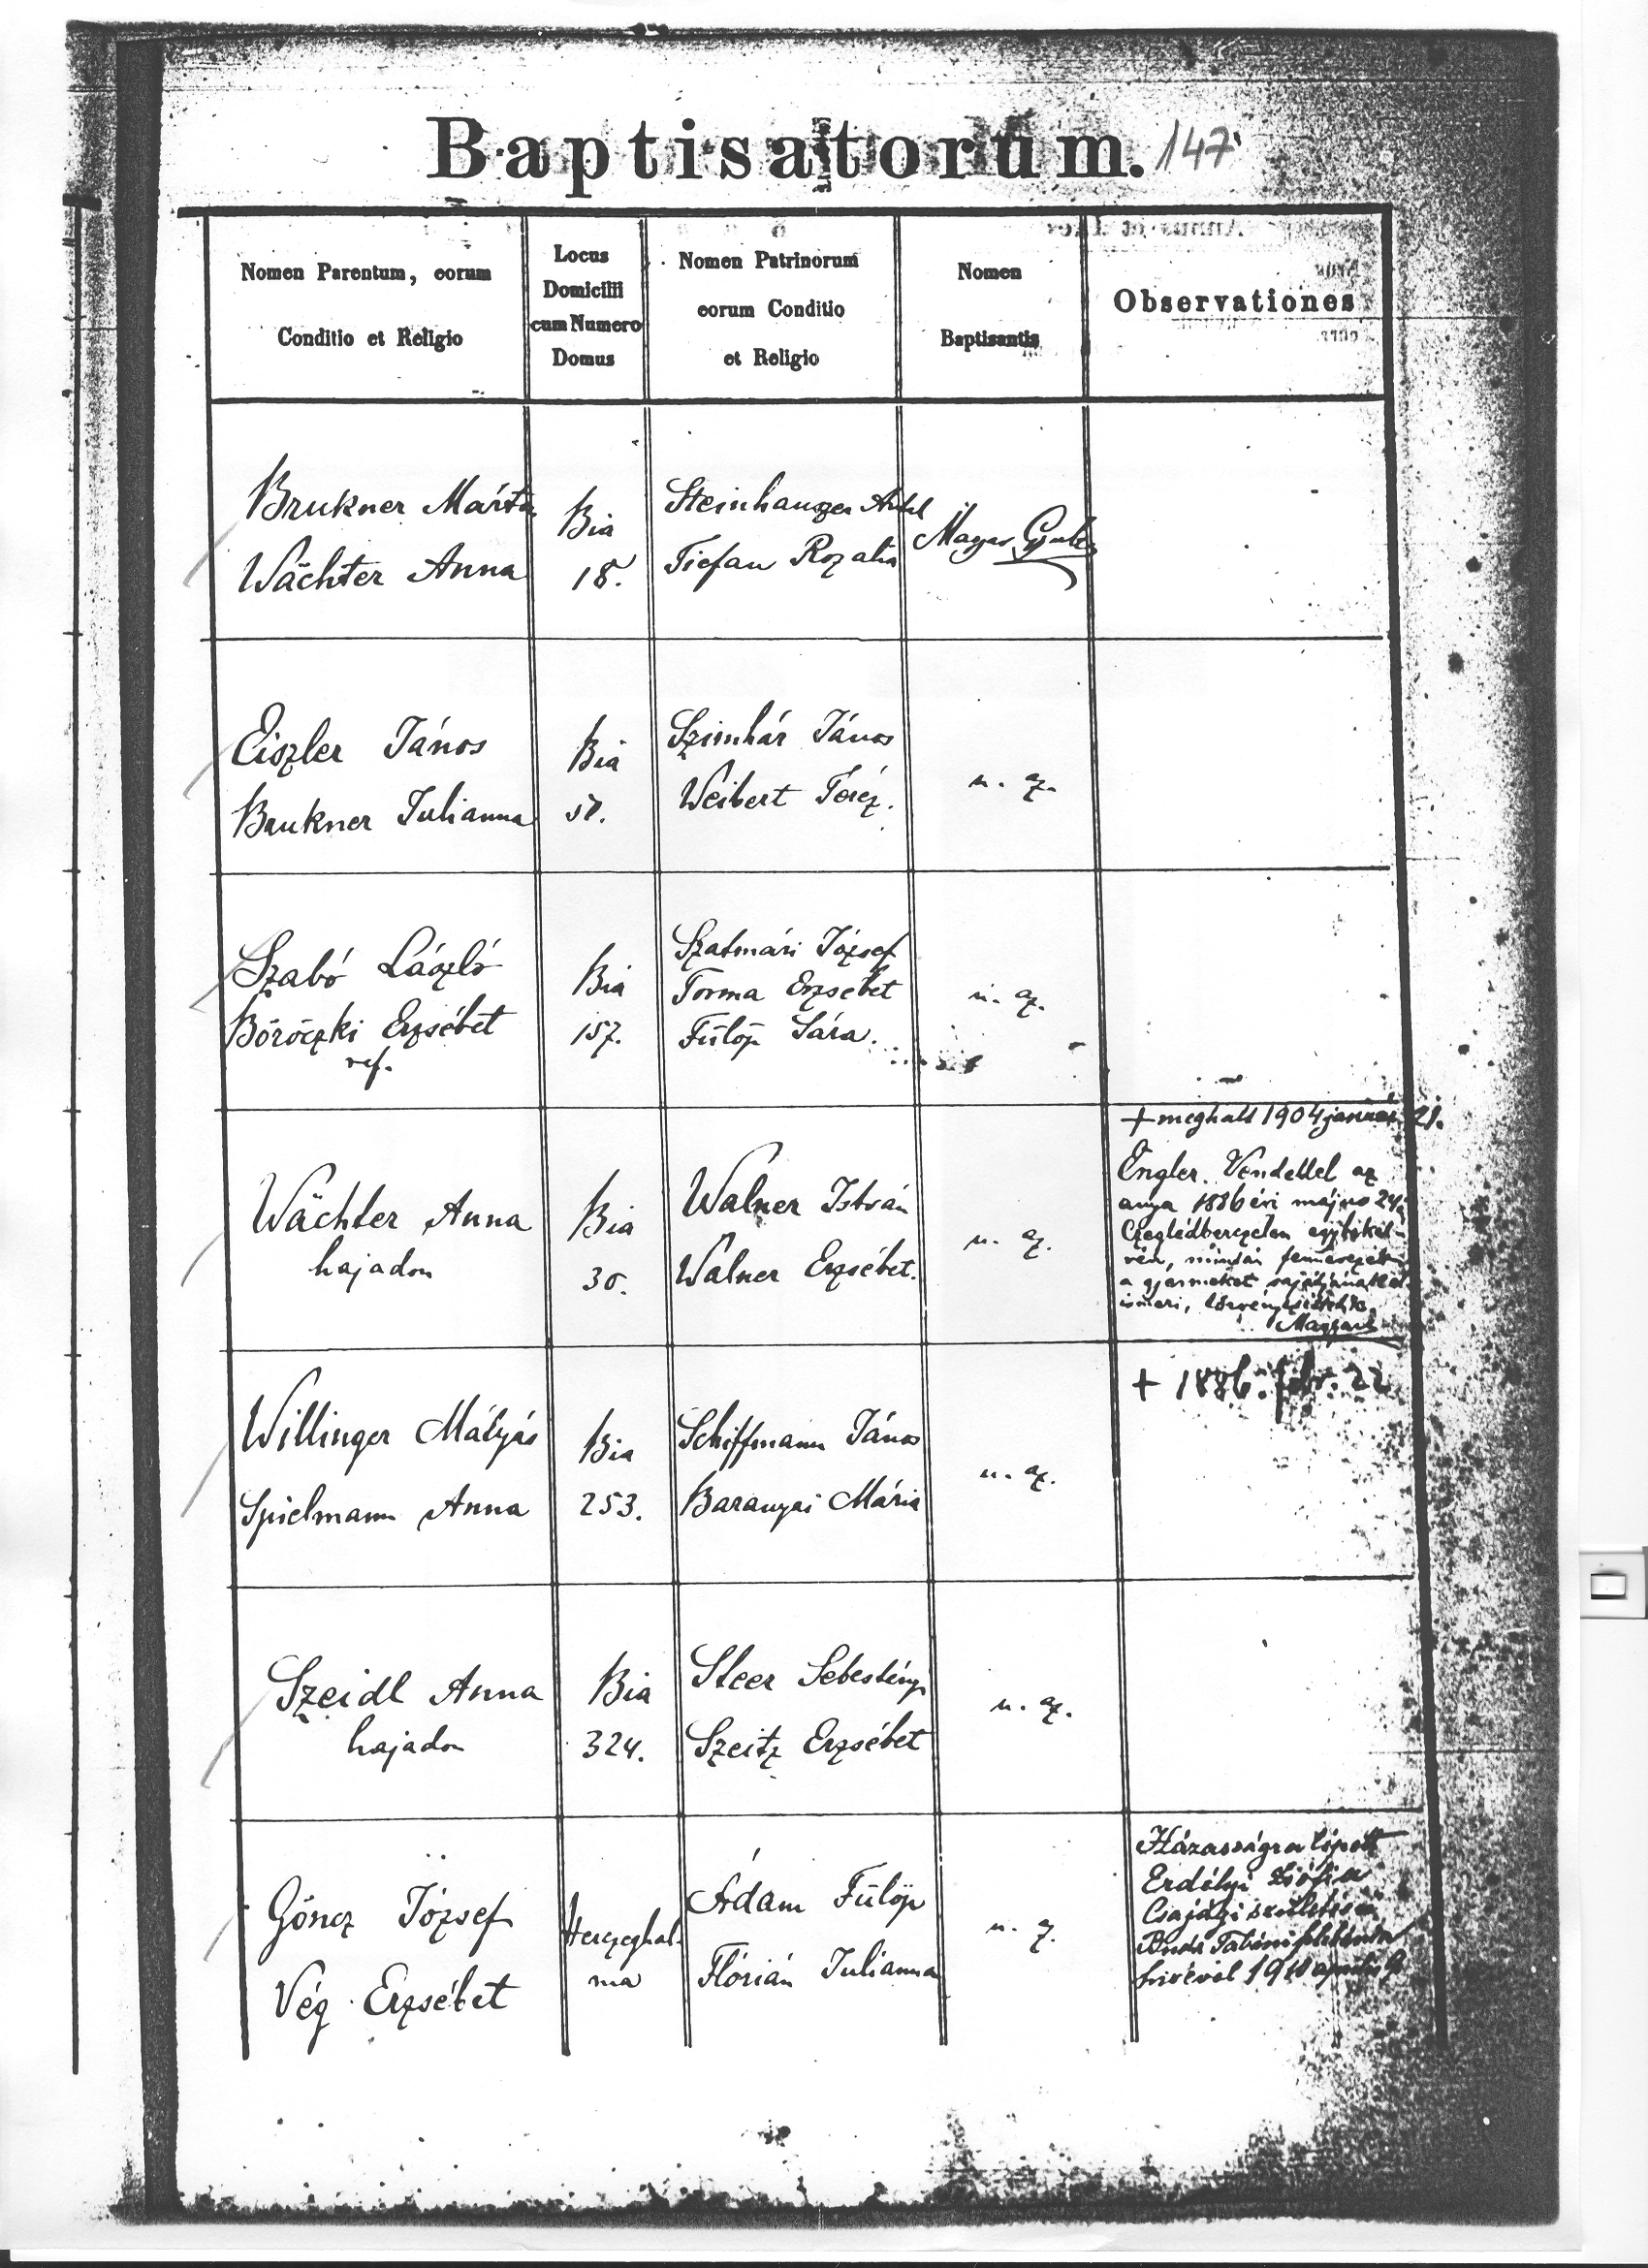 Baptisatorum. 147
Nomen Parentum, eorum
Conditio et Religio
Locus
Domicilii
cum Numero
Domus
Nomen Patrinorum
eorum Conditio
et Religio
Nomen
Baptisantis
Observationes
Brukner Márton
Wächter Anna
Bia
18.
Steinhauser Antal
Tiefan Rozalia
Magyar Gyula
Eiszler János
Brukner Julianna
Bia
Szimhár János
Weibert Teréz.
u. az.
Szabó László
Böröczki Erzsébet
ref.
Bia
157.
Szatmári József
Torma Erzsébet
Fülöp Sára.
u. az.
Wächter Anna
hajadon
Bia
30.
Walner István
Walner Erzsébet.
u. az.
+ meghalt 1904 január 21.
Engler Vendellel az
anya 1886 évi május 24
Czeglédberczelen
a gyermeket
ismeri,
Willinger Mátyás
Spielmann Anna
Bia
253.
Schiffmann János
Baranyai Mária
u. az.
+ 1886. febr. 22
Szeidl Anna
hajadon
Bia
324.
Steer Sebestény
Szeitz Erzsébet
u. az.
Göncz József
Vég Erzsébet
Herczeghal-
ma
Ádám Fülöp
Flórián Julianna
u. az.
Házasságra lépett
Erdélyi Zsófia
Csajági születésű
hívével